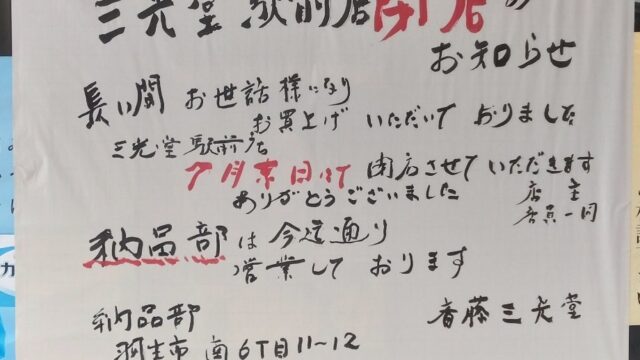 三光堂 駅前店閉店の
お知らせ
長い間 お世話様になり
お買上げ いただいて おりました
三光堂駅前店
7月末日にて 閉店させて いただきます
ありがとうございました
店主
店員一同
納品部は今迄通り
営業して おります
斉藤三光堂
納品部
羽生市 南6丁目11〜12